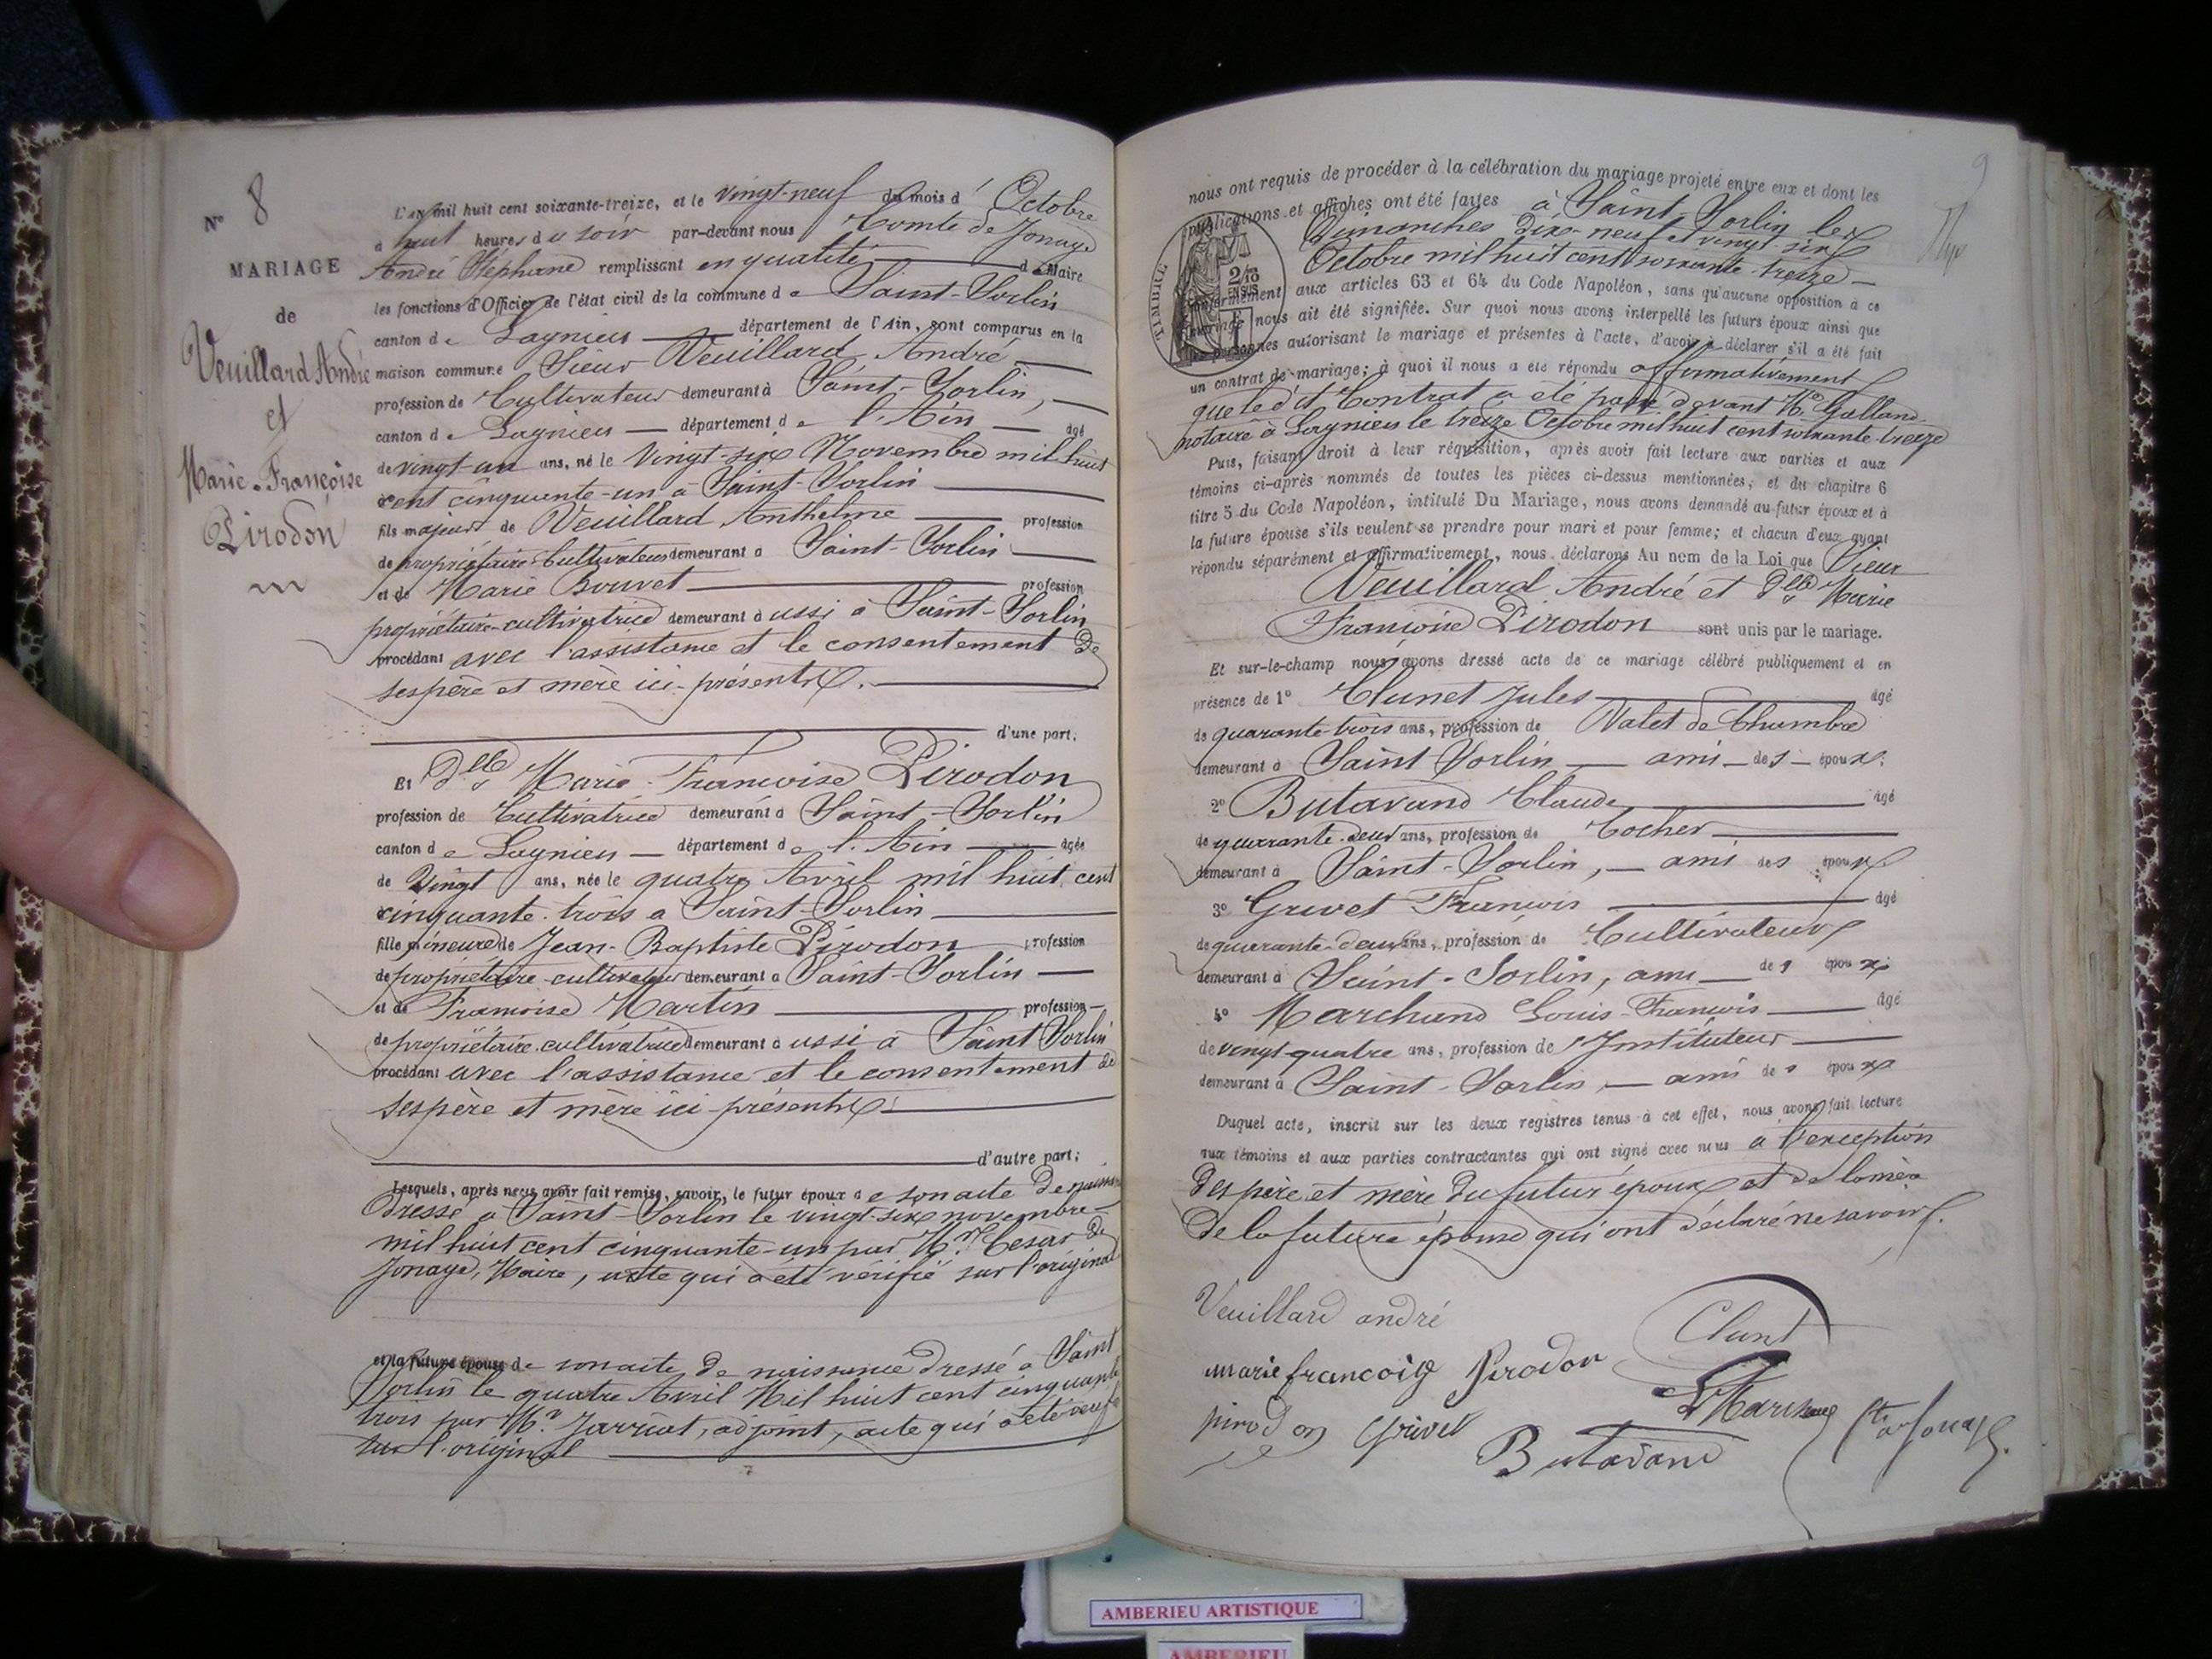 N° 8
MARIAGE
de
Veuillard André
et
Marie-Françoise
Pirodon
L'an mil huit cent soixante-treize, et le vingt-neuf du mois d'Octobre
à huit heures du soir par-devant nous Comte de Jonage
André Stéphane remplissant en qualité de Maire
les fonctions d'Officier de l'état civil de la commune de Saint-Sorlin
canton de Lagnieu département de l'Ain, sont comparus en la
maison commune Sieur Veuillard André
profession de Cultivateur demeurant à Saint-Sorlin,
canton de Lagnieu département de l'Ain âgé
de vingt-un ans, né le vingt-six Novembre mil huit
cent cinquante-un à Saint-Sorlin
fils majeur de Veuillard Anthelme profession
de propriétaire-Cultivateur demeurant à Saint-Sorlin
et de Marie Bouvet profession
propriétaire-cultivatrice demeurant aussi à Saint-Sorlin
procédant avec l'assistance et le consentement de
ses père et mère ici-présents.
d'une part;
Et Dlle Marie-Françoise Pirodon
profession de Cultivatrice demeurant à Saint-Sorlin
canton de Lagnieu département de l'Ain âgée
de Vingt ans, née le quatre Avril mil huit cent
cinquante-trois à Saint-Sorlin
fille mineure de Jean-Baptiste Pirodon profession
de propriétaire-cultivateur demeurant à Saint-Sorlin
et de Françoise Martin profession
de propriétaire-cultivatrice demeurant aussi à Saint-Sorlin
procédant avec l'assistance et le consentement de
ses père et mère ici-présents.
d'autre part;
Lesquels, après nous avoir fait remise, savoir, le futur époux de son acte de
dressé à Saint-Sorlin le vingt-six novembre
mil huit cent cinquante-un par Mr. César de
Jonage, Maire, acte qui a été vérifié sur l'original
et la future épouse de son acte de naissance dressé à Saint
Sorlin le quatre Avril Mil huit cent cinquante
trois par Mr. Jarriat, adjoint, acte qui a été vérifié
sur l'original
9
nous ont requis de procéder à la célébration du mariage projeté entre eux et dont les
publications et affiches ont été faites à Saint-Sorlin les
Dimanches Dix-neuf et vingt-six
Octobre mil huit cent soixante-treize
TIMBRE
2/10
EN SUS
conformément aux articles 63 et 64 du Code Napoléon, sans qu'aucune opposition à ce
mariage nous ait été signifiée. Sur quoi nous avons interpellé les futurs époux ainsi que
les personnes autorisant le mariage et présentes à l'acte, d'avoir à déclarer s'il a été fait
un contrat de mariage; à quoi il nous a été répondu affirmativement
que ledit Contrat a été passé devant Me Galland
notaire à Lagnieu le treize Octobre mil huit cent soixante-treize
Puis, faisant droit à leur réquisition, après avoir fait lecture aux parties et aux
témoins ci-après nommés de toutes les pièces ci-dessus mentionnées, et du chapitre 6
titre 5 du Code Napoléon, intitulé Du Mariage, nous avons demandé au futur époux et à
la future épouse s'ils veulent se prendre pour mari et pour femme; et chacun d'eux ayant
répondu séparément et affirmativement, nous déclarons Au nom de la Loi que Sieur
Veuillard André et Dlle Marie
Françoise Pirodon sont unis par le mariage.
Et sur-le-champ nous avons dressé acte de ce mariage célébré publiquement et en
présence de 1° Clunet Jules âgé
de quarante-trois ans, profession de Valet de Chambre
demeurant à Saint Sorlin ami des époux.
2° Butavand Claude âgé
de quarante-deux ans, profession de Cocher
demeurant à Saint-Sorlin, ami des époux
3° Grivet François âgé
de quarante-deux ans, profession de Cultivateur
demeurant à Saint-Sorlin, ami des époux
4° Marchand Louis-François âgé
de vingt-quatre ans, profession de Instituteur
demeurant à Saint-Sorlin, ami des époux
Duquel acte, inscrit sur les deux registres tenus à cet effet, nous avons fait lecture
aux témoins et aux parties contractantes qui ont signé avec nous à l'exception
des père et mère du futur époux et de la mère
de la future épouse qui ont déclaré ne savoir.
Veuillard andré
Clunet
marie francoise Pirodon
L Marchand
pirodon Grivet
Butavand
Cte de Jonage.
AMBERIEU ARTISTIQUE
AMBERIEU